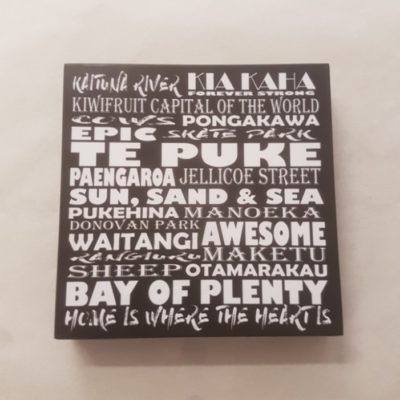 KAITUNA RIVER KIA KAHA
FOREVER STRONG
KIWIFRUIT CAPITAL OF THE WORLD
COWS PONGAKAWA
EPIC SKATE PARK
TE PUKE
PAENGAROA JELLICOE STREET
SUN, SAND & SEA
PUKEHINA MANOEKA
DONOVAN PARK
WAITANGI AWESOME
RANGIURU MAKETU
SHEEP OTAMARAKAU
BAY OF PLENTY
HOME IS WHERE THE HEART IS